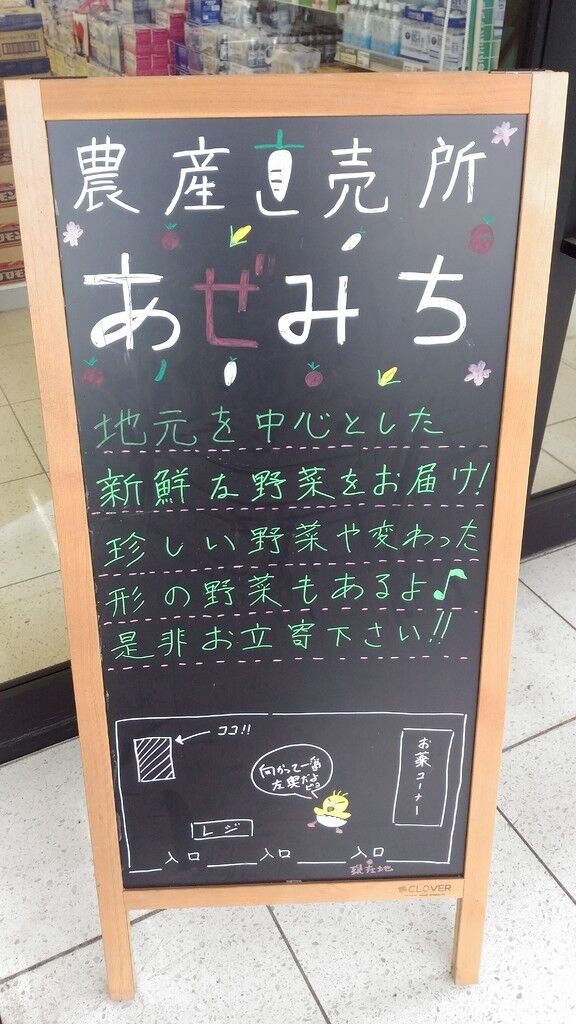 農産直売所
あぜみち
地元を中心とした
新鮮な野菜をお届け!
珍しい野菜や変わった
形の野菜もあるよ♪
是非お立寄下さい!!
ココ!!
お薬コーナー
向かって一番
左奥だよ
ピヨ
レジ
入口
入口
入口
現在地
CLOVER